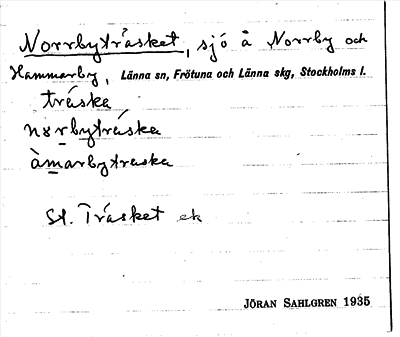 Norrbyträsket, sjö å Norrby och
Hammarby, Länna sn, Frötuna och Länna skg, Stockholms l.
träska
nørbyträska
àmarbytraska
St. Träsket ek
JÖRAN SAHLGREN 1935